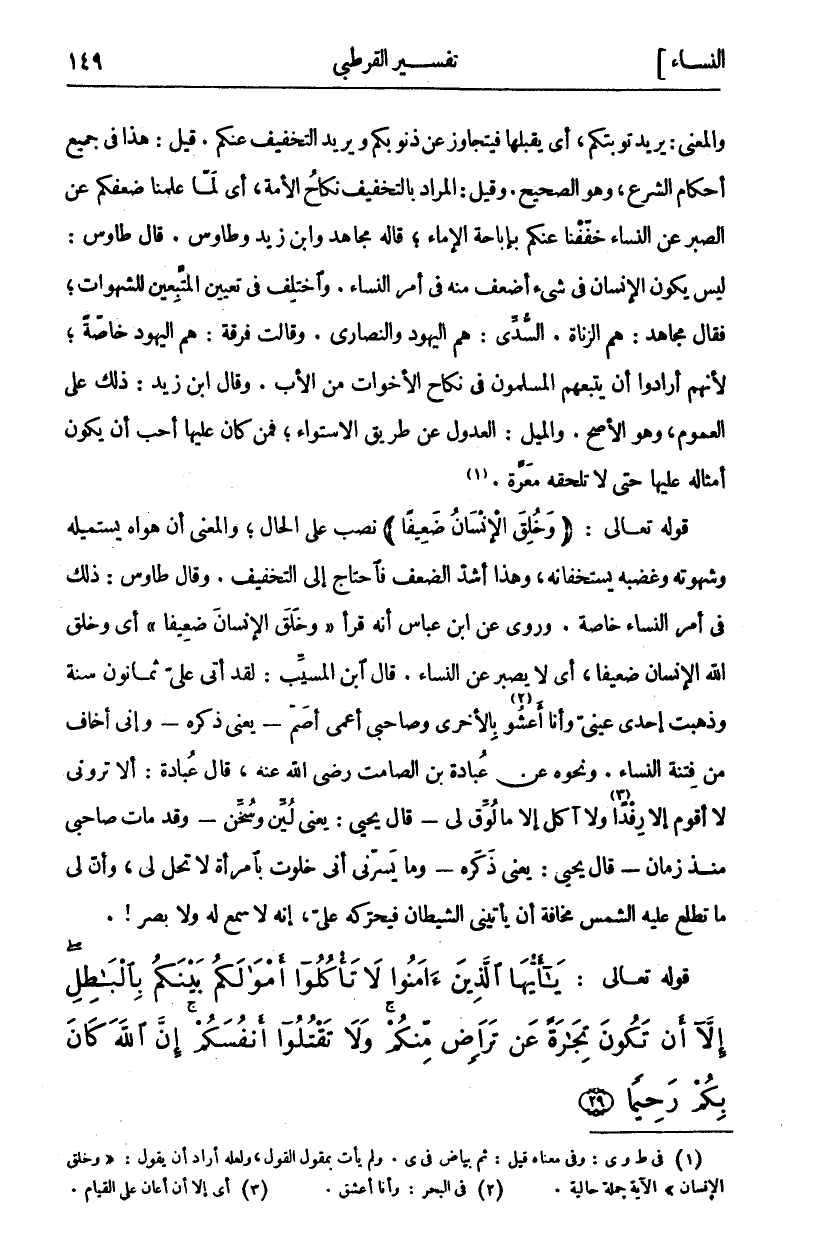 النساء] تفسير القرطبي ١٤٩
والمعنى: يريد توبتكم، أى يقبلها فيتجاوز عن ذنوبكم ويريد التخفيف عنكم . قيل : هذا فى جميع
أحكام الشرع، وهو الصحيح. وقيل: المراد بالتخفيف نكاحُ الأمة، أى لَمّا علمنا ضعفكم عن
الصبر عن النساء خفّفْنا عنكم بإباحة الإماء ؛ قاله مجاهد وابن زيد وطاوس . قال طاوس :
ليس يكون الإنسان فى شىء أضعف منه فى أمر النساء . وٱختلِف فى تعيين المتَّبِعين للشهوات ؛
فقال مجاهد : هم الزناة . السُّدِّى : هم اليهود والنصارى . وقالت فرقة : هم اليهود خاصّةً ؛
لأنهم أرادوا أن يتبعهم المسلمون فى نكاح الأخوات من الأب . وقال ابن زيد : ذلك على
العموم، وهو الأصح . والميل : العدول عن طريق الاستواء ؛ فمن كان عليها أحب أن يكون
أمثاله عليها حتى لا تلحقه معَرّة . (١)
قوله تعالى : ﴿ وَخُلِقَ الْإِنْسَانُ ضَعِيفًا ﴾ نصب على الحال ؛ والمعنى أن هواه يستميله
وشهوته وغضبه يستخفانه، وهذا أشدّ الضعف فٱحتاج إلى التخفيف . وقال طاوس : ذلك
فى أمر النساء خاصة . وروى عن ابن عباس أنه قرأ « وخَلَقَ الإنسانَ ضعيفا » أى وخلق
الله الإنسان ضعيفا، أى لا يصبر عن النساء . قال ٱبن المسيِّب : لقد أتى علىّ ثمانون سنة
وذهبت إحدى عينىّ وأنا أَعشُو (٢) بالأخرى وصاحبى أعمى أصَمّ — يعنى ذكره — وإنى أخاف
من فِتنة النساء . ونحوه عن عُبادة بن الصامت رضى الله عنه ، قال عُبادة : ألا ترونى
لا أقوم إلا رِفْدًا (٣) ولا آكل إلا ما لُوِّق لى — قال يحيى : يعنى لُيِّن وسُخِّن — وقد مات صاحبى
منذ زمان — قال يحيى : يعنى ذَكَره — وما يَسرّنى أنى خلوت بٱمرأة لا تحل لى، وأنّ لى
ما تطلع عليه الشمس مخافة أن يأتينى الشيطان فيحرّكه علىّ، إنه لا سمع له ولا بصر ! .
قوله تعالى : يَـٰٓأَيُّهَا ٱلَّذِينَ ءَامَنُوا لَا تَأْكُلُوٓا أَمْوَٰلَكُم بَيْنَكُم بِٱلْبَـٰطِلِ
إِلَّآ أَن تَكُونَ تِجَـٰرَةً عَن تَرَاضٍ مِّنكُمْ ۚ وَلَا تَقْتُلُوٓا أَنفُسَكُمْ ۚ إِنَّ ٱللَّهَ كَانَ
بِكُمْ رَحِيمًا ﴿٢٩﴾
(١) فى ط وى : وفى معناه قيل : ثم بياض فى ى . ولم يأت بمقول القول، ولعله أراد أن يقول : « وخلق
الإنسان » الآية جملة حالية . (٢) فى البحر : وأنا أعشق . (٣) أى إلا أن أعان على القيام .